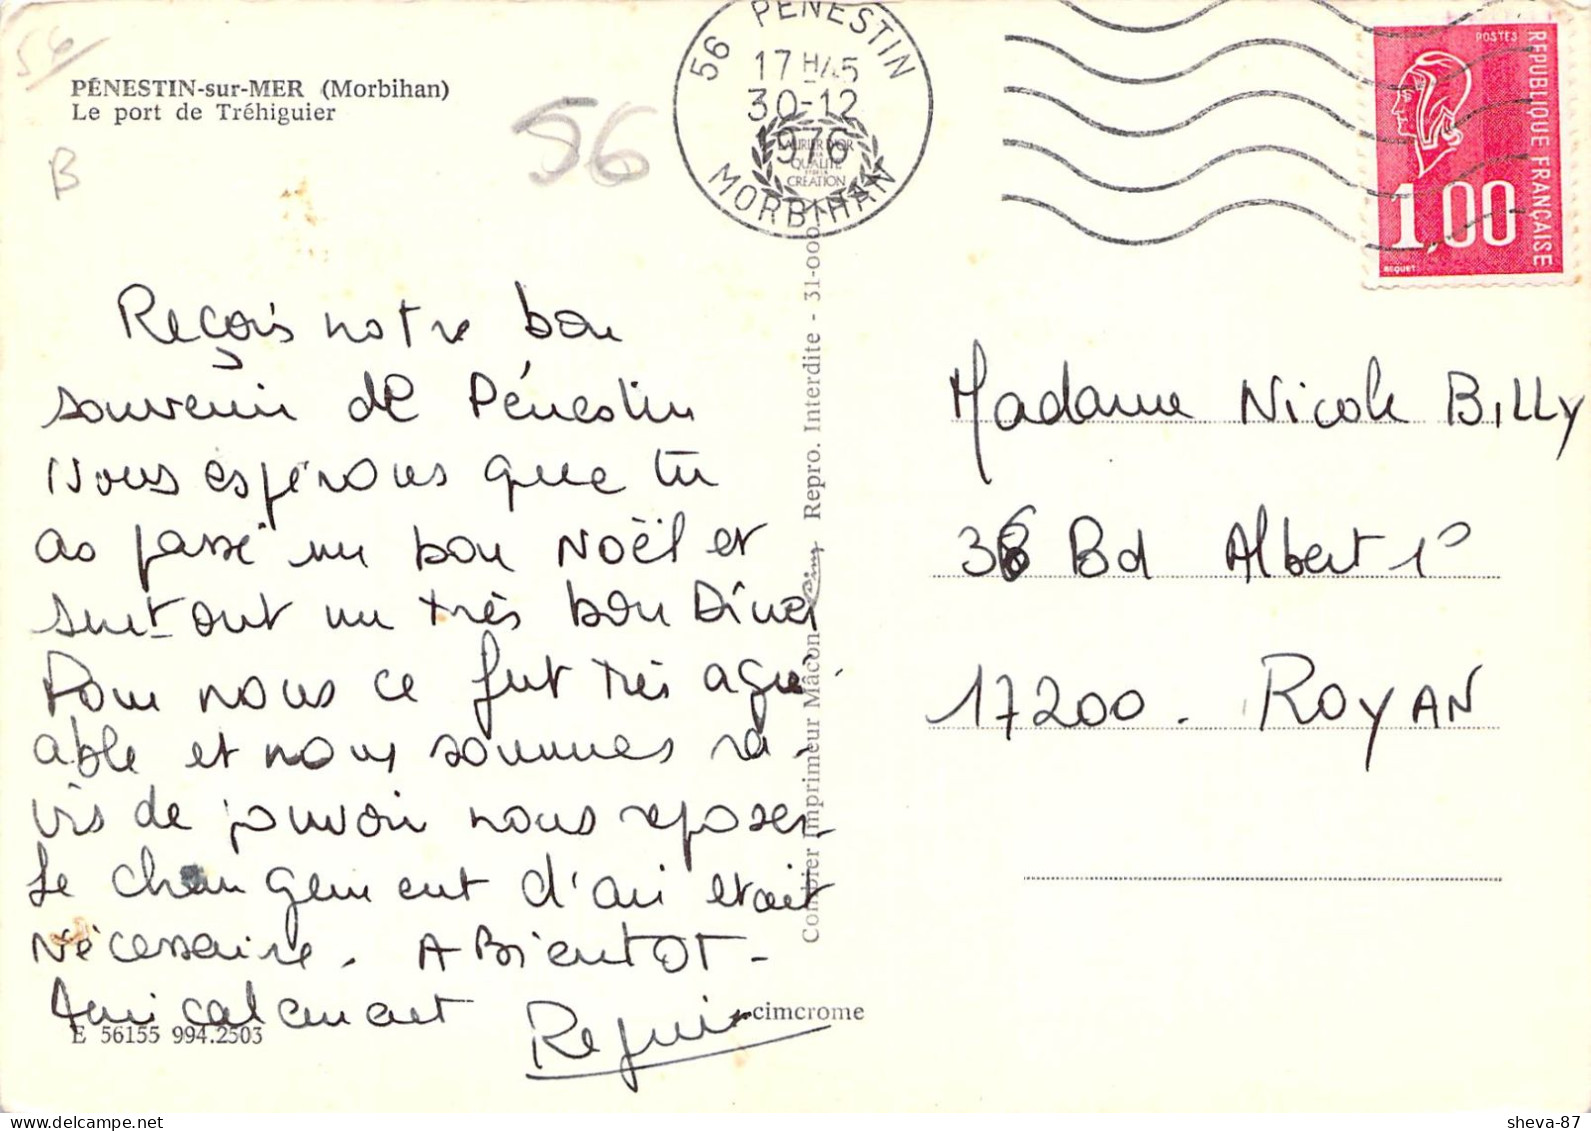 56
PÉNESTIN-sur-MER (Morbihan)
Le port de Tréhiguier
B
56
56 PENESTIN
17 H45
30-12
1976
LAURIER D'OR
QUALITE
CREATION
MORBIHAN
POSTES
REPUBLIQUE FRANÇAISE
1,00
BEQUET
Reçois notre bon
souvenir de Pénestin
Nous espérons que tu
as passé un bon Noël et
surtout un très bon Dîner
Pour nous ce fut très agré-
able et nous sommes ra-
vis de pouvoir nous reposer.
Le changement d'air etait
Nécessaire. A Bientot -
Amicalement
E 56155 994.2503
Combier Imprimeur Mâcon Cim Repro. Interdite - 31-000
cimcrome
Madame Nicole BILLY
36 Bd Albert 1°
17200 - ROYAN
sheva-87